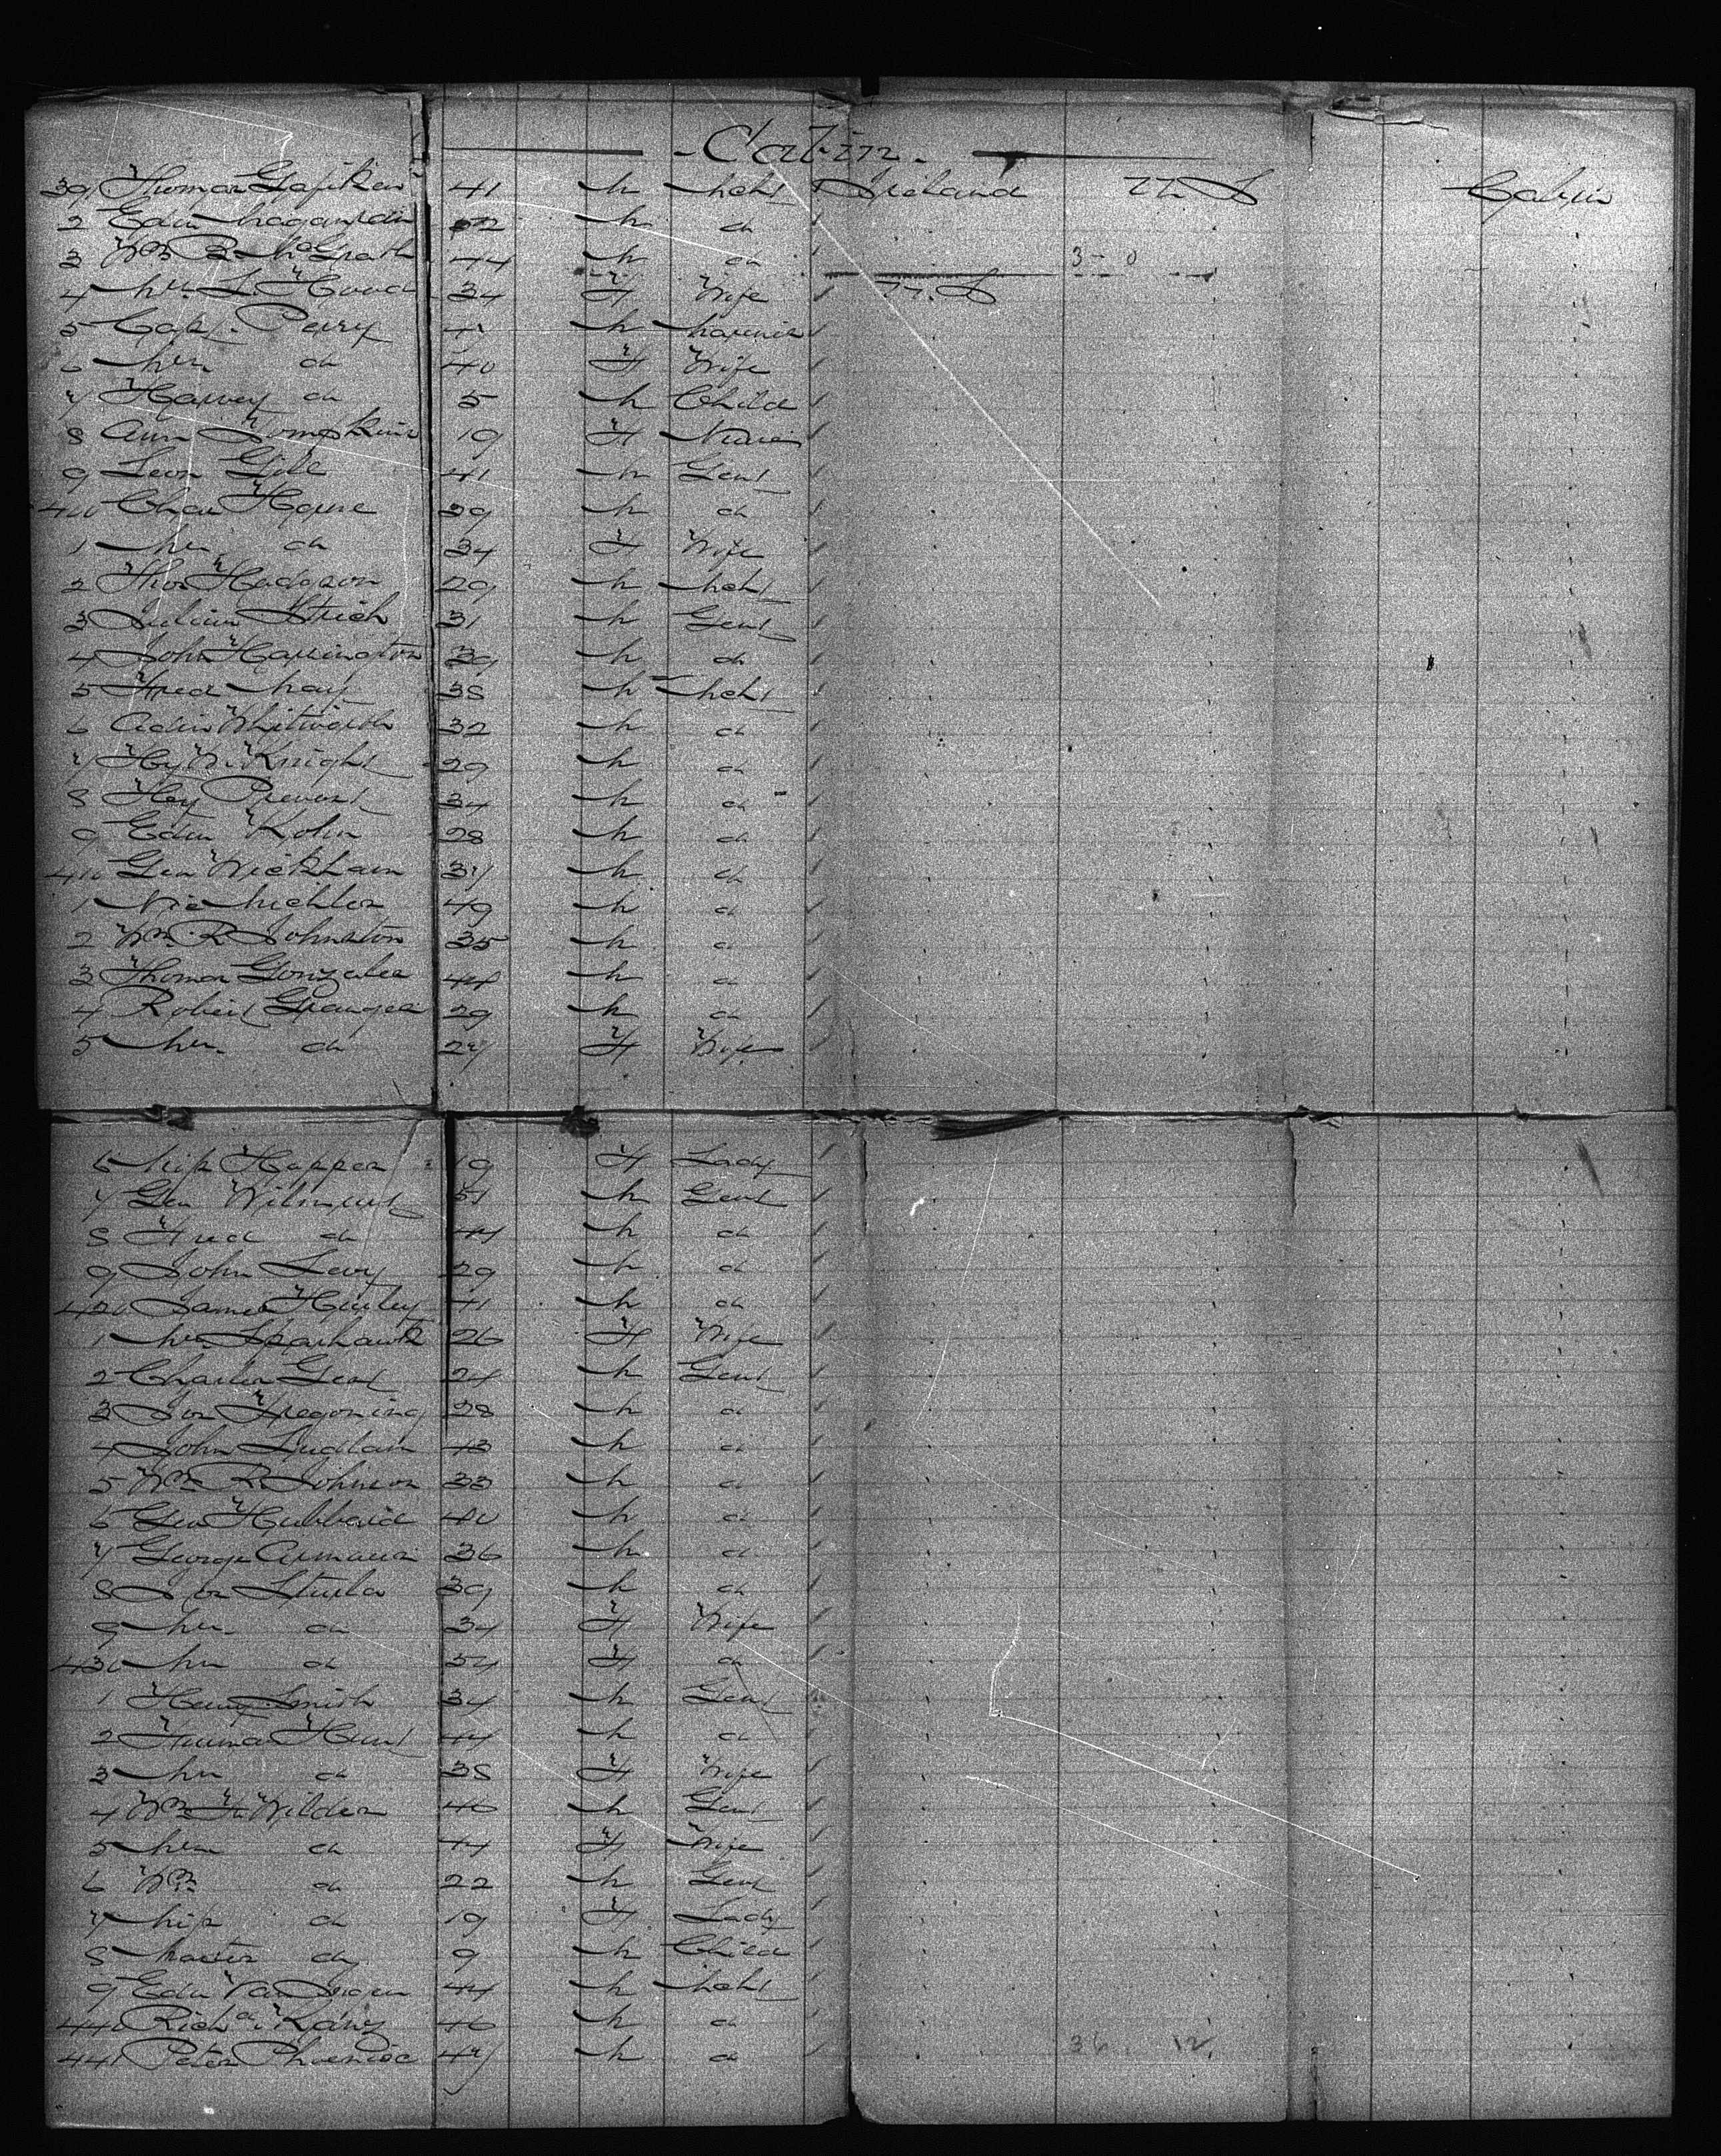 Cabin.
39 Thomas 41 M Mcht Ireland U.S. Cabin
2 Edw 52 M do
3 Wm B McGrath 44 M do 3 - 0
4 Mrs L. Hood 34 F Wife U.S.
5 Capt. Perry 47 M Mariner
6 Mrs do 40 F Wife
7 Harvey do 5 M Child
8 Ann Tompkins 19 F Nurse
9 Leon 41 M Gent
400 Chas Horne 39 M do
1 Mrs do 34 F Wife
2 Thos Hodgson 29 M Mcht
3 31 M Gent
4 John Harrington 39 M do
5 Fred May 38 M Mcht
6 Whitworth 32 M do
7 Hy W. Knight 29 M do
8 Hy Prevost 34 M do
9 Edw Kohn 28 M do
410 Geo Wickham 37 M do
1 49 M do
2 Wm R Johnston 35 M do
3 Thomas Gonzales 44 M do
4 Robert Granger 29 M do
5 Mrs. do 27 F Wife
6 Miss Hopper 19 F Lady
7 Geo 51 M Gent
8 Fred do 44 M do
9 John Levy 29 M do
420 James Hurley 41 M do
1 Mrs Sparhawk 26 F Wife
2 Charles 24 M Gent
3 Jos Tregoning 28 M do
4 John Ludlam 43 M do
5 Wm R Johnson 33 M do
6 Geo Hubbard 40 M do
7 George 36 M do
8 Jos 39 M do
9 Mrs. do 34 F Wife
430 Mrs do 54 F do
1 Henry Smith 34 M Gent
2 Hunt 44 M do
3 Mrs do 38 F Wife
4 Wm F Wilder 46 M Gent
5 Mrs do 44 F Wife
6 Wm do 22 M Gent
7 Miss do 19 F Lady
8 Master do 9 M Child
9 Edw 44 M Mcht
440 Richd 46 M do
441 Peter 47 M do 36 12